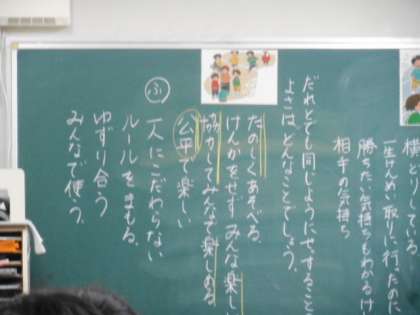 横ど
している。
一生けんめい取りに行ったのに
勝ちたい気持ちもわかるけ
相手の気持ち
だれとでも同じようにせっすること
よさは、どんなことでしょう。
たのしくあそべる。
けんかをせず、みんな楽し
協力してみんなで楽しめる
公平で楽しい
ふ
一人にこだわらない
ルールをまもる。
ゆずり合う
みんなで使う。